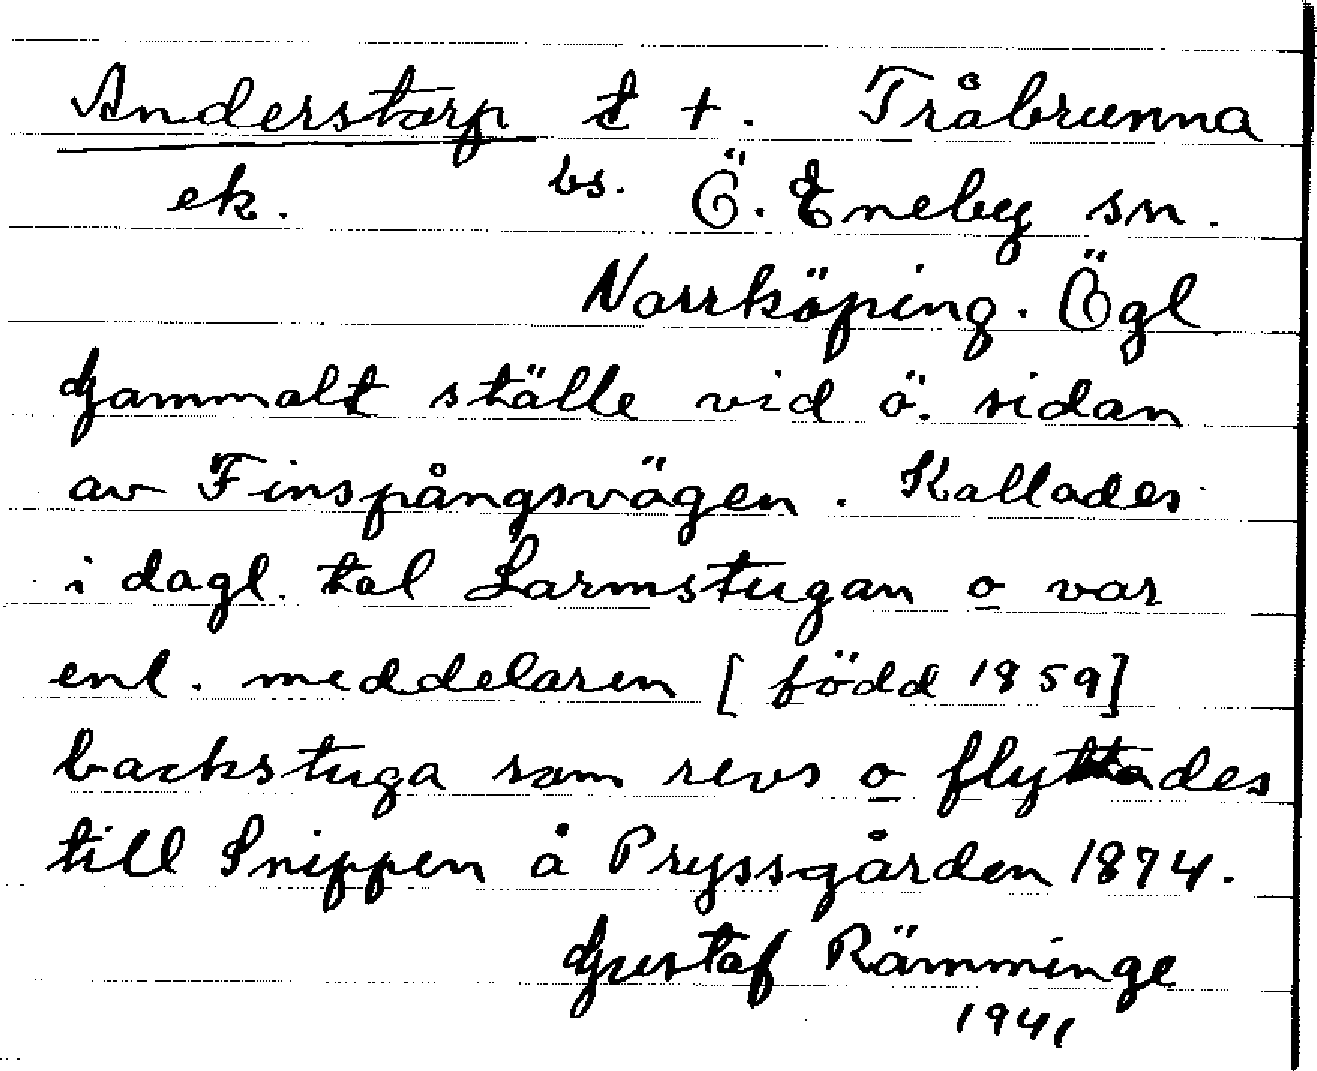 Anderstorp t +. Tråbrunna
ek. bs. Ö. Eneby sn.
Norrköping. Ögl
Gammalt ställe vid ö. sidan
av Finspångsvägen. Kallades
i dagl. tal Larmstugan o var
enl. meddelaren [född 1859]
backstuga som revs o flyttades
till Snippen å Pryssgården 1874.
Gustaf Rämminge
1941